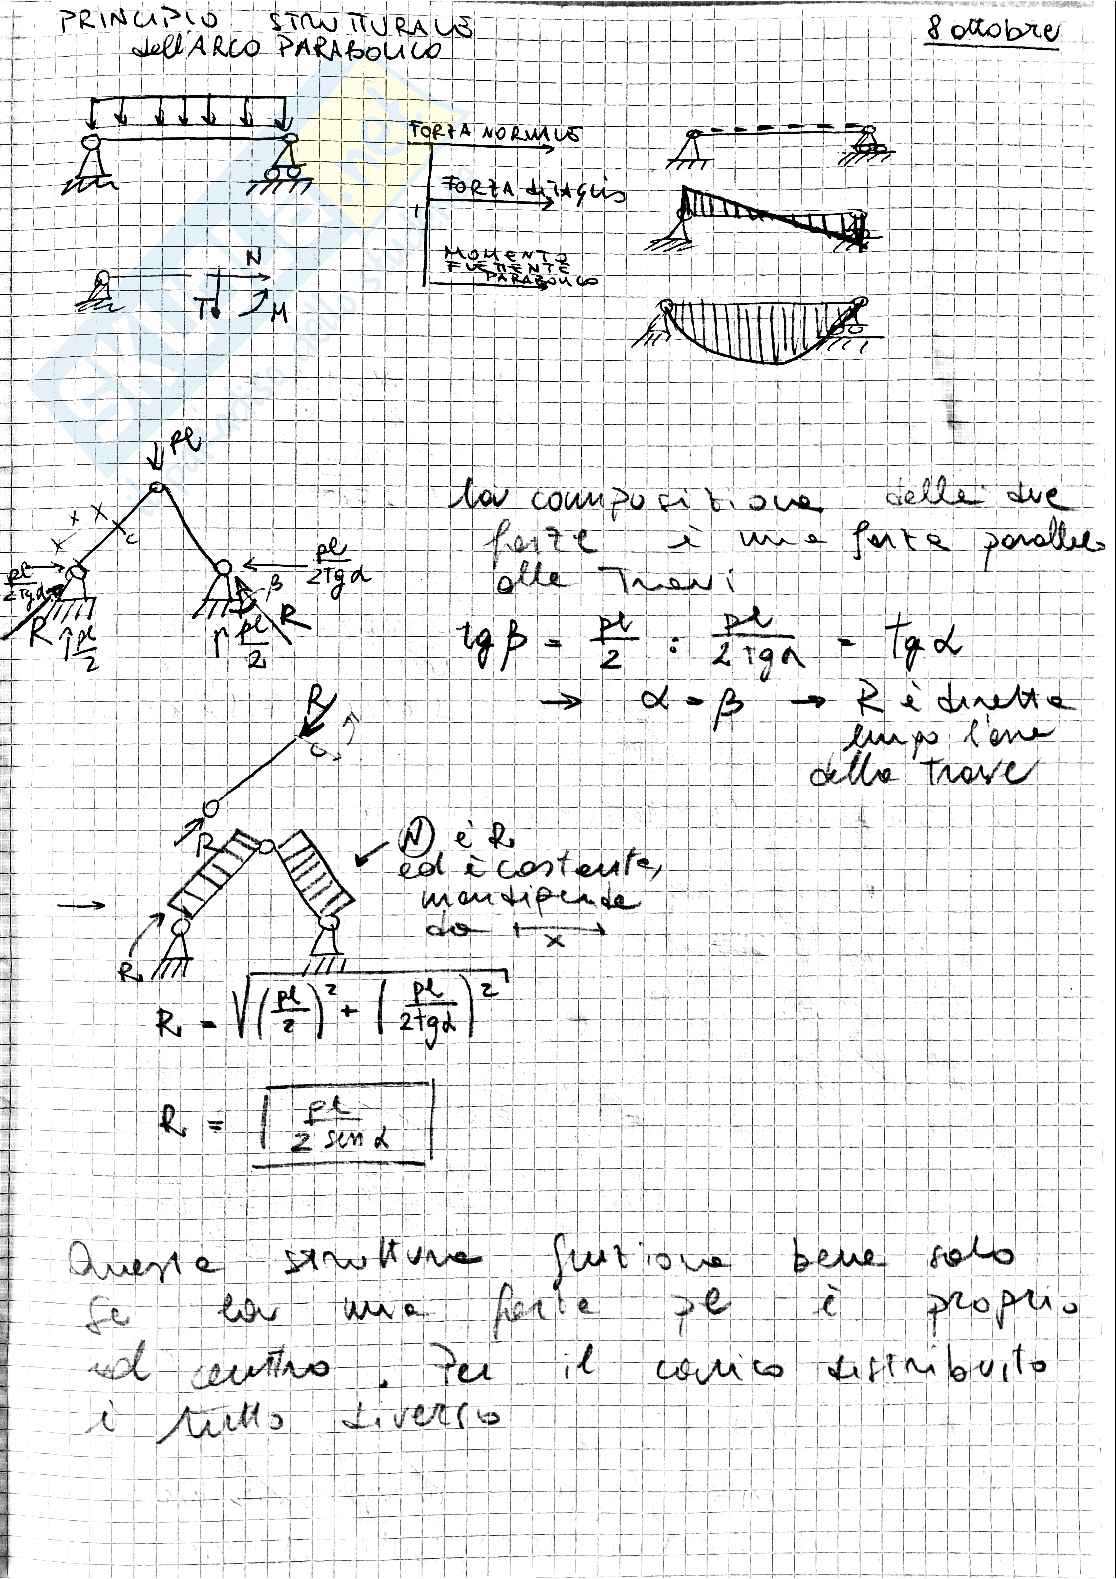 PRINCIPIO STRUTTURALE
dell'ARCO PARABOLICO
8 ottobre
FORZA NORMALE
FORZA di TAGLIO
MOMENTO
FLETTENTE
PARABOLICO
N
T
M
pl
c
pl/2tgα
pl/2tgα
β
R
pl/2
pl/2
R
la composizione delle due
forze è una forza parallela
alle travi
tg β = pl/2 : pl/2tgα = tg α
→ α = β → R è diretta
lungo l'asse
della trave
R
R
N è R
ed è costante,
indipende
da x
R
R = √(pl/2)² + (pl/2tgα)²
R = pl/2 sen α
Questa struttura funziona bene solo
se la mia forza pl è proprio
al centro. Per il carico distribuito
è tutto diverso